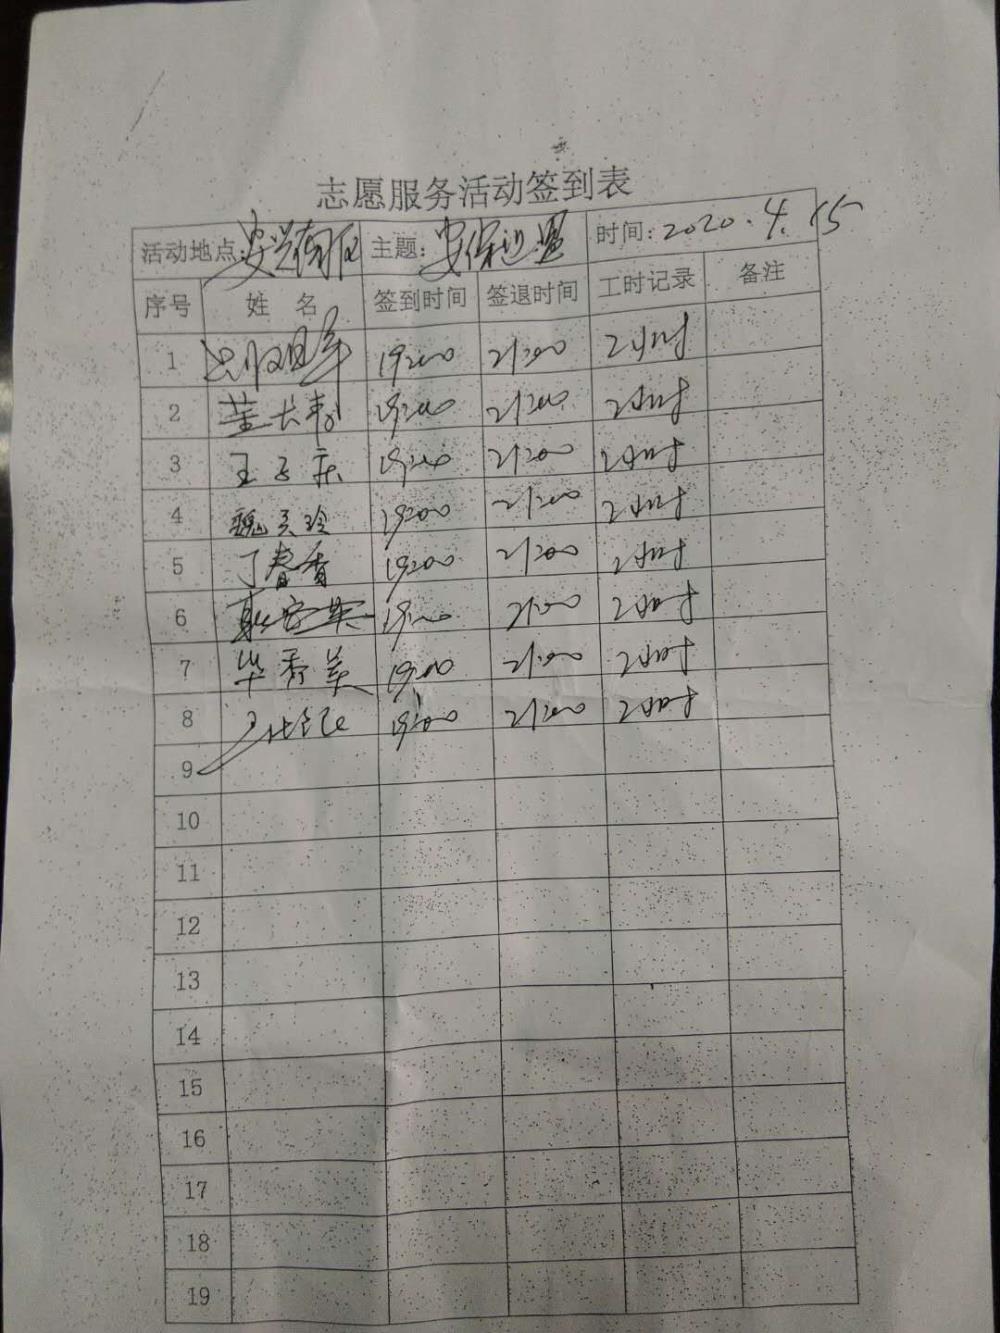 志愿服务活动签到表
活动地点: 安兴南区 主题: 安保巡逻 时间: 2020.4.15
序号 姓名 签到时间 签退时间 工时记录 备注
1 19:00 21:00 2小时
2 董长寿 19:00 21:00 2小时
3 王玉庆 19:00 21:00 2小时
4 魏灵玲 19:00 21:00 2小时
5 丁春香 19:00 21:00 2小时
6 19:00 21:00 2小时
7 华秀美 19:00 21:00 2小时
8 19:00 21:00 2小时
9
10
11
12
13
14
15
16
17
18
19